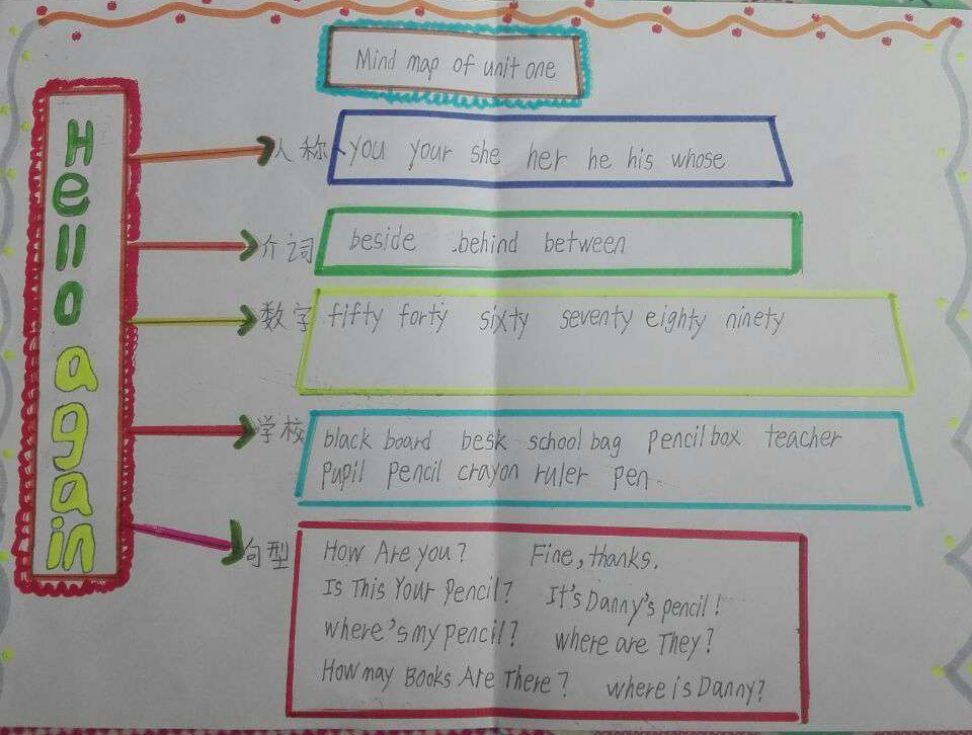 Mind map of unit one
Hello again
人称 you your she her he his whose
介词 beside behind between
数字 fifty forty sixty seventy eighty ninety
学校 black board besk school bag pencil box teacher
pupil pencil crayon ruler pen
句型 How Are you? Fine, thanks.
Is This Your Pencil? It's Danny's pencil!
where's my pencil? where are They?
How may Books Are There? where is Danny?